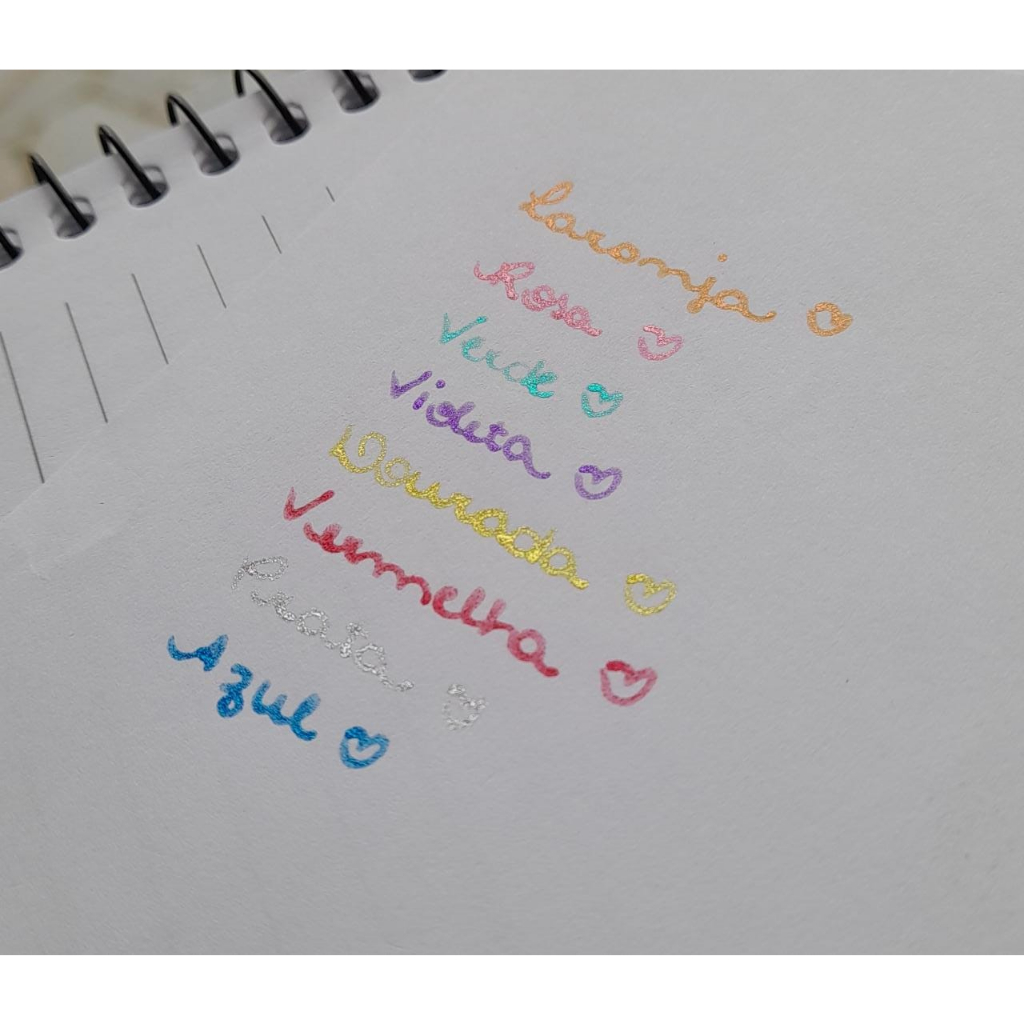 Laranja ♡
Rosa ♡
Verde ♡
Violeta ♡
Dourado ♡
Vermelho ♡
Prata ♡
Azul ♡